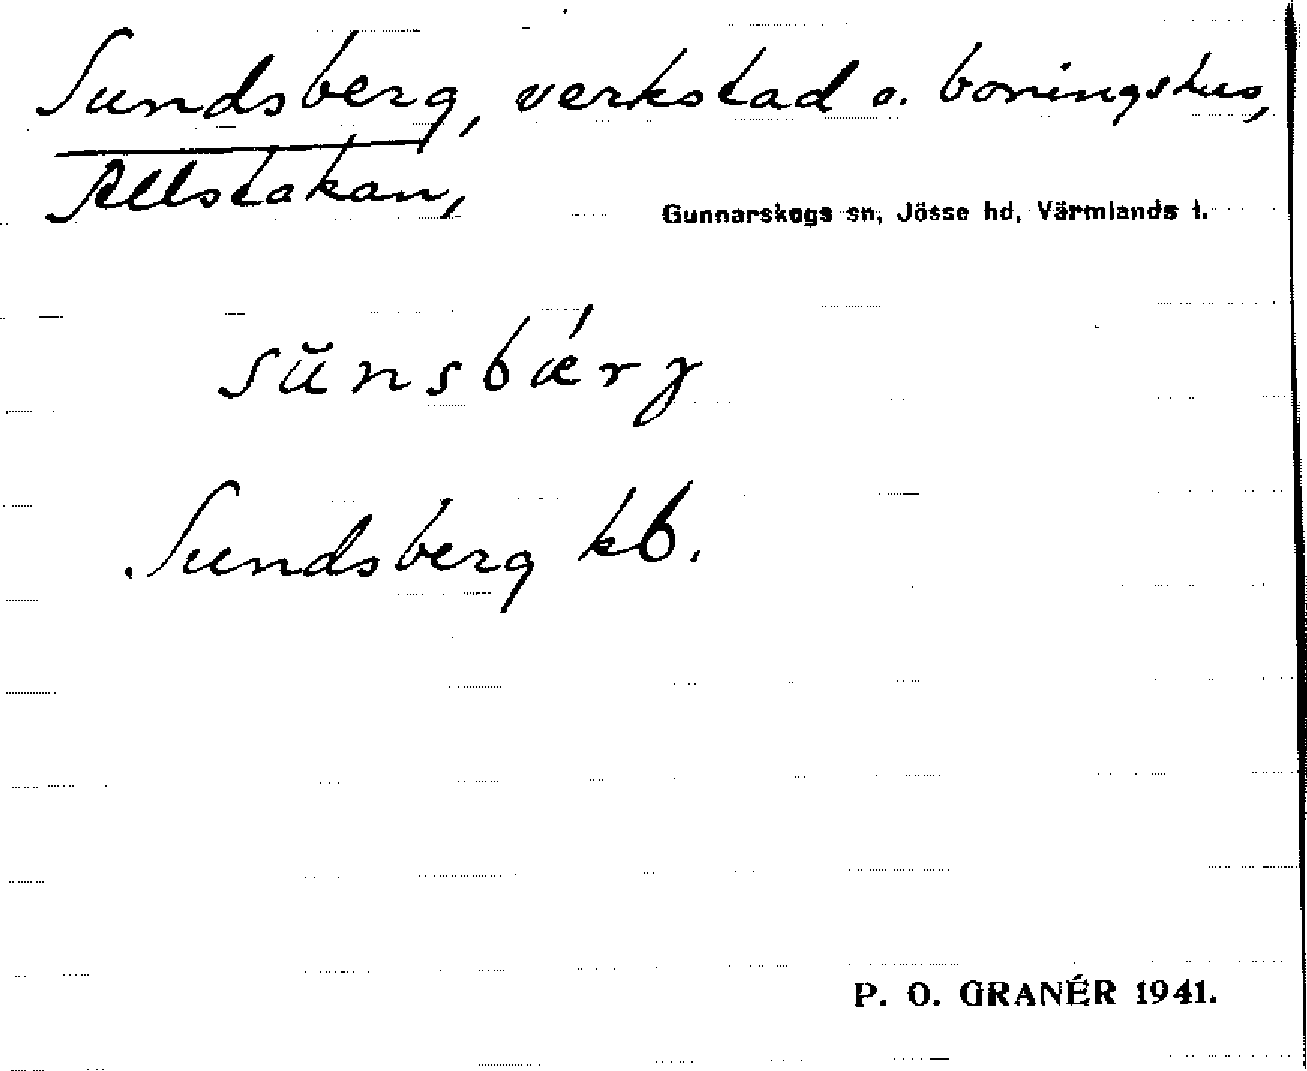 Sundsberg, verkstad o. boningshus,
Allstakan,
Gunnarskogs sn, Jösse hd, Värmlands l.
sŭnsbǽrg
Sundsberg kb.
P. O. GRANÉR 1941.